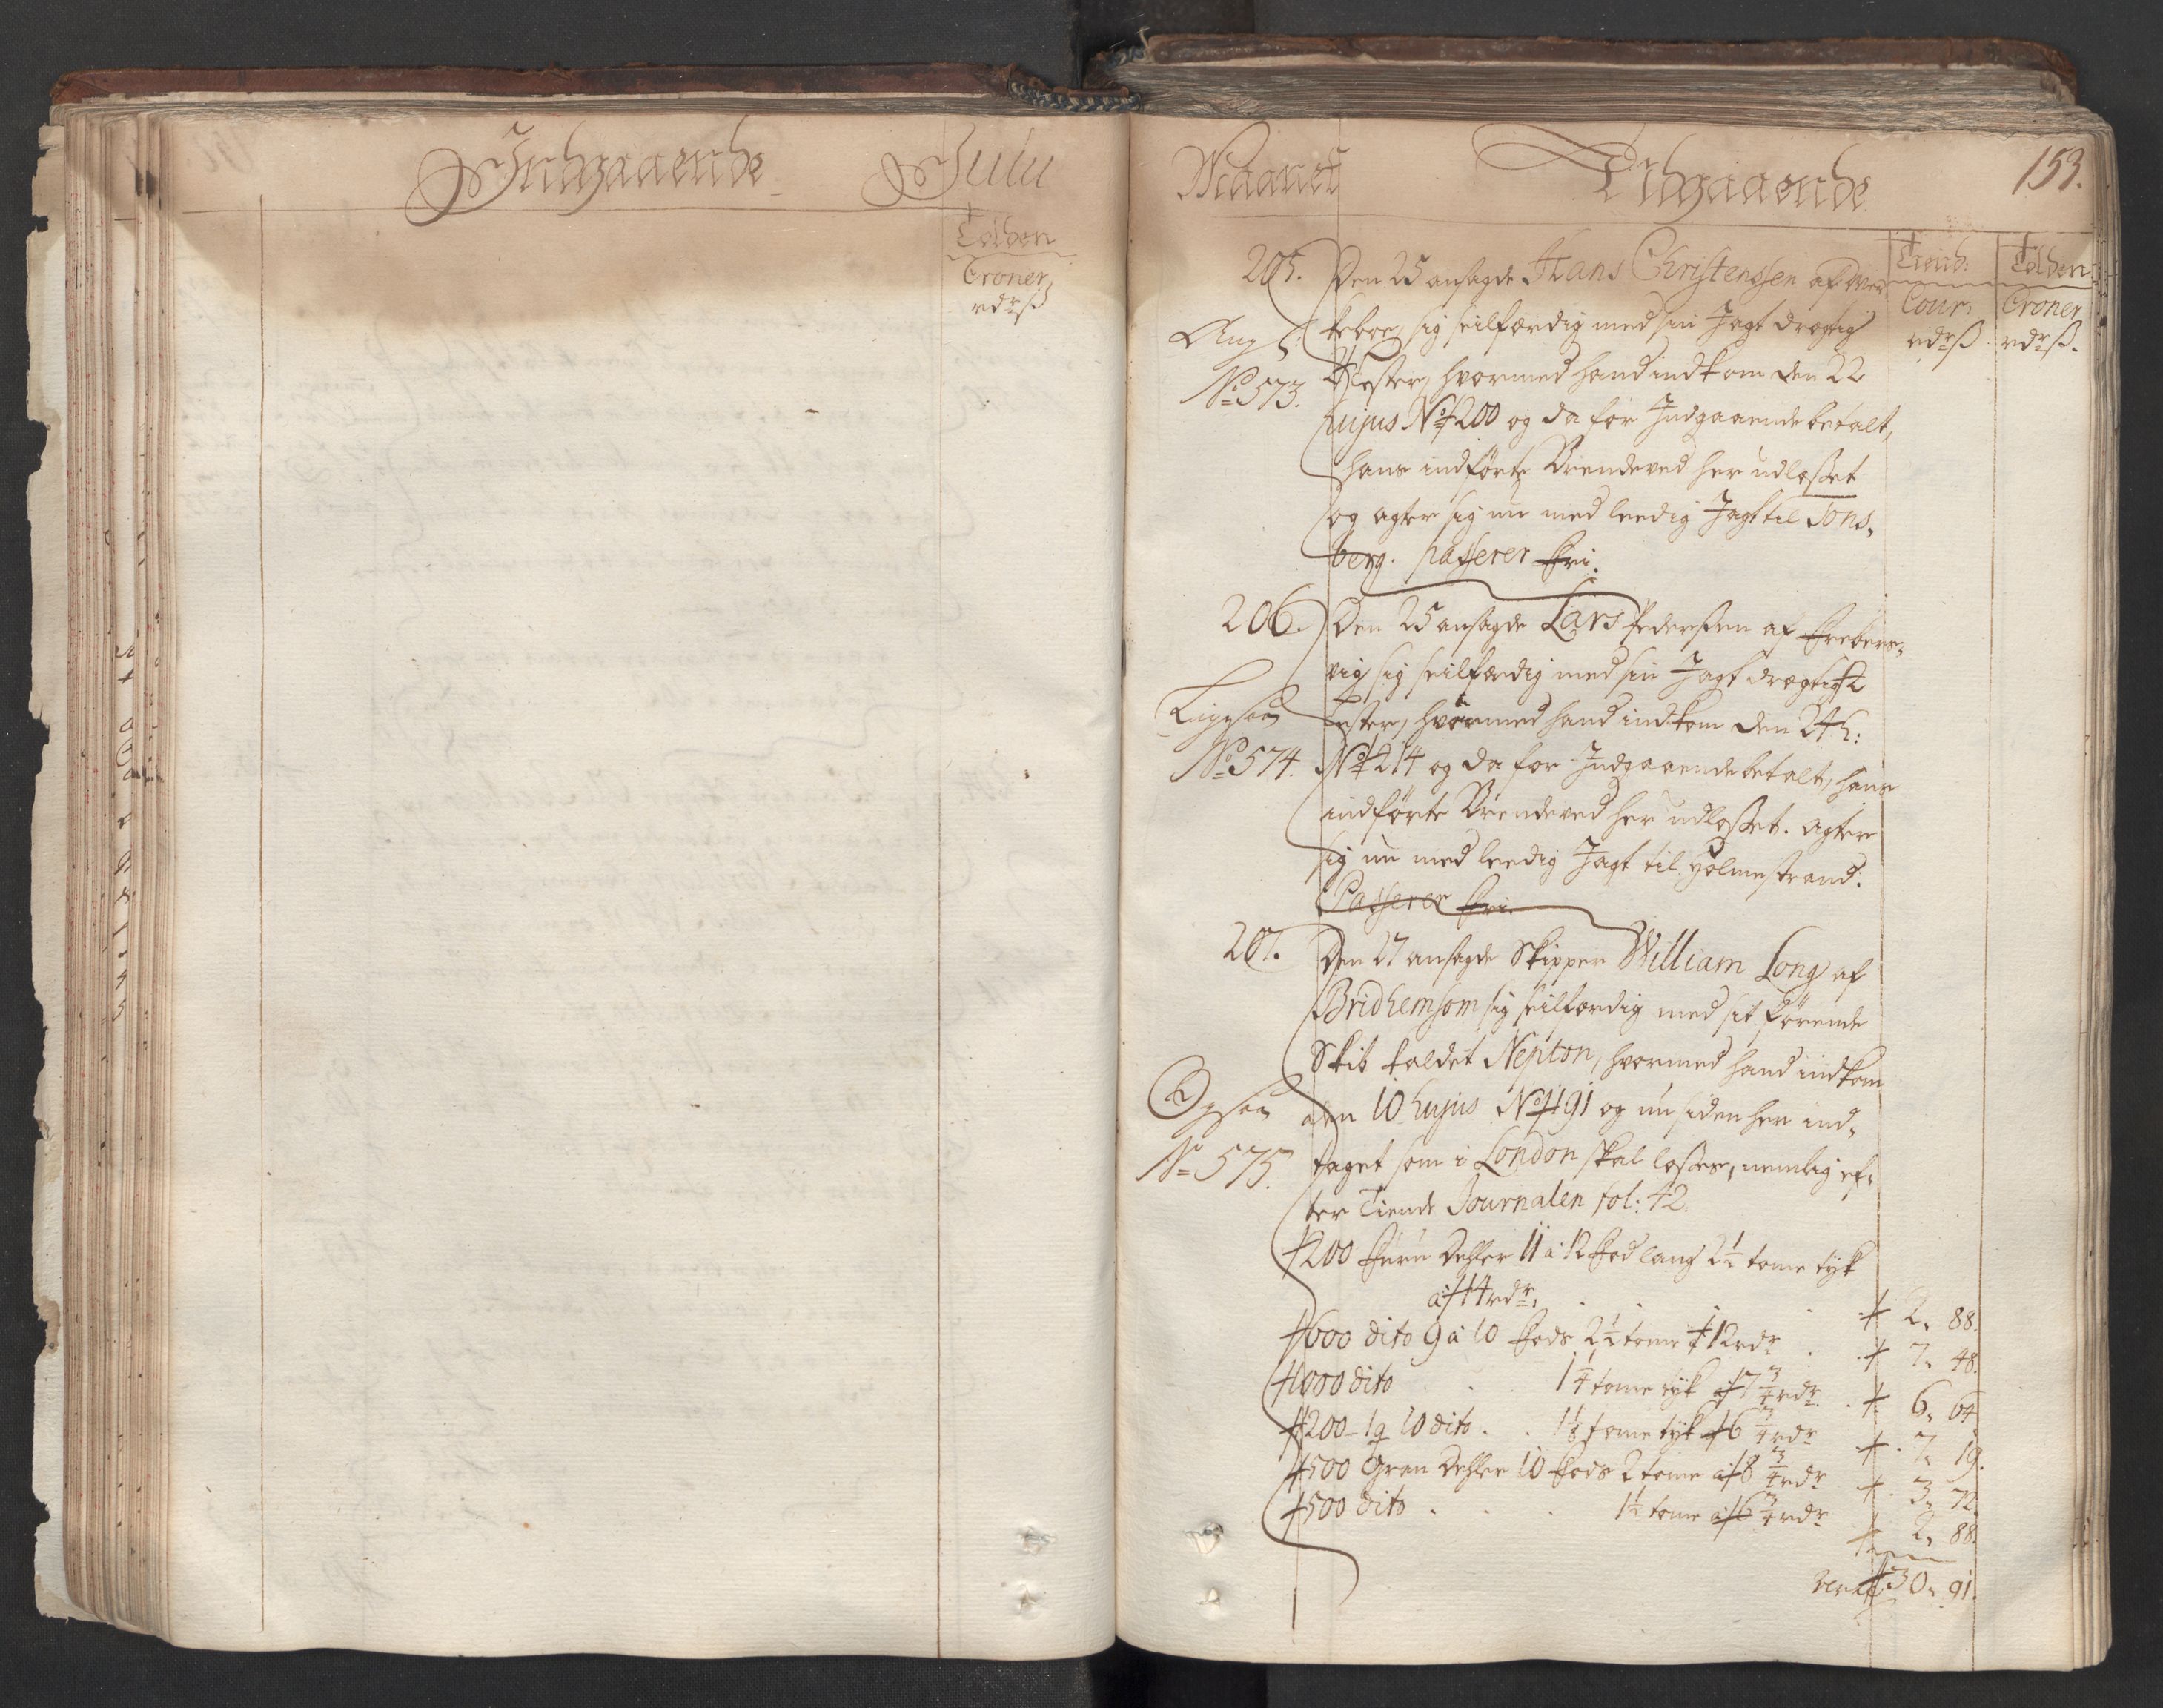 Indgaaende Julii
Tolden
Croner
rdr ß
Maanet Udgaaende 153.
Tiend: Tolden
Cour: Croner
rdr ß rdr ß.
205. Den 25 ansagde Hans Christenssen af
keboe, sig seilfærdig med sin Jagt drægtig
No 573. Lester, hvormed hand indkom den 22
hujus No 200 og da for Indgaaende betalt,
hans indførte Brendeved her udlosset
og agter sig nu med leedig Jagt til Tons-
berg. passerer fri.
206. Den 25 ansagde Lars Pederssen af Frebers-
vig sig seilfærdig med sin Jagt drægtig
Lester, hvormed hand indkom den 24 h:
No 574. No 214 og da for Indgaaende betalt, hans
indførte Brendeved her udlosset. agter
sig nu med leedig Jagt til Holmestrand.
Passerer fri.
207. Den 27 ansagde Skipper William Long af
Bridhemsom sig seilfærdig med sit førende
Skib kaldet Nepton, hvormed hand indkom
den 10 hujus No 191 og nu siden her ind-
No 575. taget som i London skal losses, nemlig ef-
ter Tiende Journalen fol: 42.
200 furu Dehler 11 a 12 fod lang 2½ tome tyk
a 14 rdr. 2, 88.
600 dito 9 a 10 fods 2½ tome 12 rdr 7, 48.
1000 dito 1¼ tome tyk a 7¾ rdr 6, 64
1200 - 9 10 dito 1⅛ tome tyk 6¾ rdr 7, 19.
500 Gran Dehler 10 fods 2 tome a 8¾ rdr 3, 72
500 dito 1½ tome a 6¾ rdr 2, 88.
30, 91.